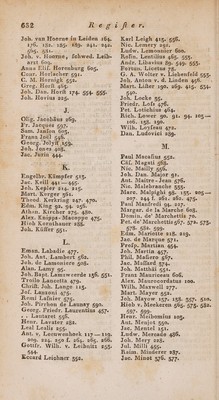 682 Register.
Joh. van Hoorne in Leiden 164.
176. 182. 185. 189. 241. 242.
505. 541.
Joh. v. Hoorne, schwed. Leib-
arzt 609.
Anna Elis. Horenburg 605.
Conr. Horlacher 591.
C. M. Hornigk 551.
Greg. Horst 465.
Joh. Dan. Horst 174. 554. 555.
Joh. Hovius 225.
J.
Olig. Jacobäus 269.
Fr. Jacques 597.
Sam. Janson 605.
Franz Joël 546.
Georg. Jolyff 259.
Joh. Jones 408.
Jac. Jurin 444.
K.
Engelbr. Kämpfer 515.
Jac. Keill 441 — 445.
Joh. Kepler 214.
Mart. Kerger 562.
Theod. Kerkring 247. 470.
Edm. King 92. 94. 245.
Athan. Kircher 275. 480.
Alex. Knipps-Macoppe 475.
Hiob Kornthauer 585.
Joh. Küffler 551.
L.
Eman. Labadie 477.
Joh. Ant. Lambert 562.
Joh. de Lamoniere 508.
Alan. Lamy 95.
Joh. Bapt. Lamzweerde 136. 551.
Troilo Lancetta 479.
Christ. Joh. Lange 115.
Jos. Lanzoni 475.
Romi Lasnier 575.
Joh. Pirrhon de Launay 590.
Georg. Friedr. Laurentius 457.
— Lautaret 556.
Henr. Lavater 282.
Leal Lealis 255.
Ant. v. Leeuwenhoek 117 — 119.
209. 224. 250. 264. 265. 266.
Gottfr. Wilh. v. Leibnitz 255.
544.
Eccard Leichner 552.
Karl Leigh 415. 556.
Nic. Lemery 291.
Ludw. Lemonnier 600.
Rosin. Lentilius 465. 555.
Andr. Libavius 89. 540. 555.
Fortun. Licetus 72.
G. A. Wolter v. Liebenfeld 555.
Joh. Anton v. d. Linden 456.
Mart. Lister 190. 269. 415. 554.
540.
Joh. Locke 55.
Friedr. Loss 476.
Pet. Lotichius 464.
Rich. Lower 90. 91. 94. 105 —
106. 158. 190.
Wilh. Loyseau 472.
Dan. Ludovici 289.
M.
Paul Macasius 552.
Cäs. Magati 568.
Nic. Mailly 556.
Joh. Dan. Major 91.
Ant. Maitre-Jean 576.
Nic. Malebranche 555.
Marc. Malpighi 96. 155. 205 —
207. 244. 261. 262. 475.
Paul Manfredi 94. 227.
Margar. de la Marche 605.
Domin. de Marchettis 70.
Pet. de' Marchettis 567. 572. 575.
578. 592. 599.
Edm. Mariotte 218. 219.
Jac. de Marque 571.
Prosp. Martian 454.
Joh. Martin 457.
Phil. Masiero 567.
Jac. Massard 574.
Joh. Mathisi 551.
Franz Mauriceau 606.
Alex. Maurocordatus 100.
Wilh. Maxwell 277.
Mart. Mayer 551.
Joh. Mayow 157. 158. 507. 510.
Hiob v. Meekren 565. 575. 582.
597. 599.
Henr. Meibomius 105.
Ant. Menjot 550.
Jac. Mentel 151.
Ludw. Mercado 466.
Joh. Mery 128.
Jul. Milli 455.
Raim. Minderer 287.
Jac. Minot 576. 577.